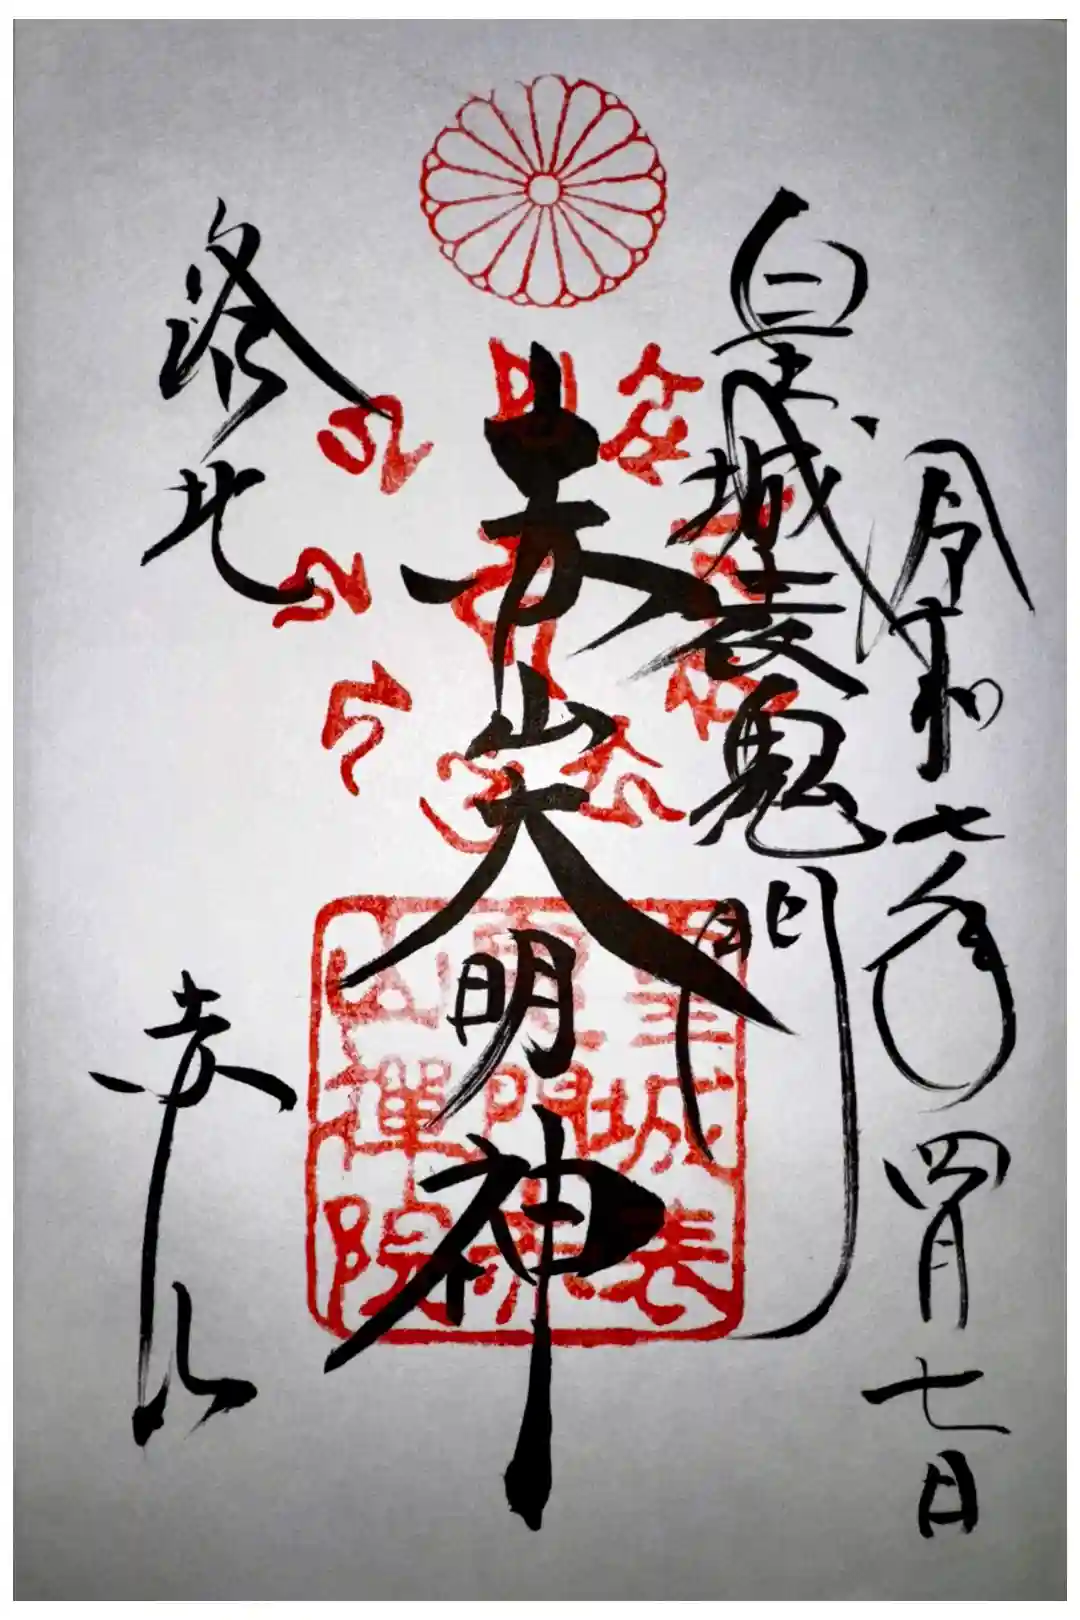 令和七年四月七日
皇城表鬼門
赤山大明神
洛北
赤山
皇城表
鬼門赤
山禅院